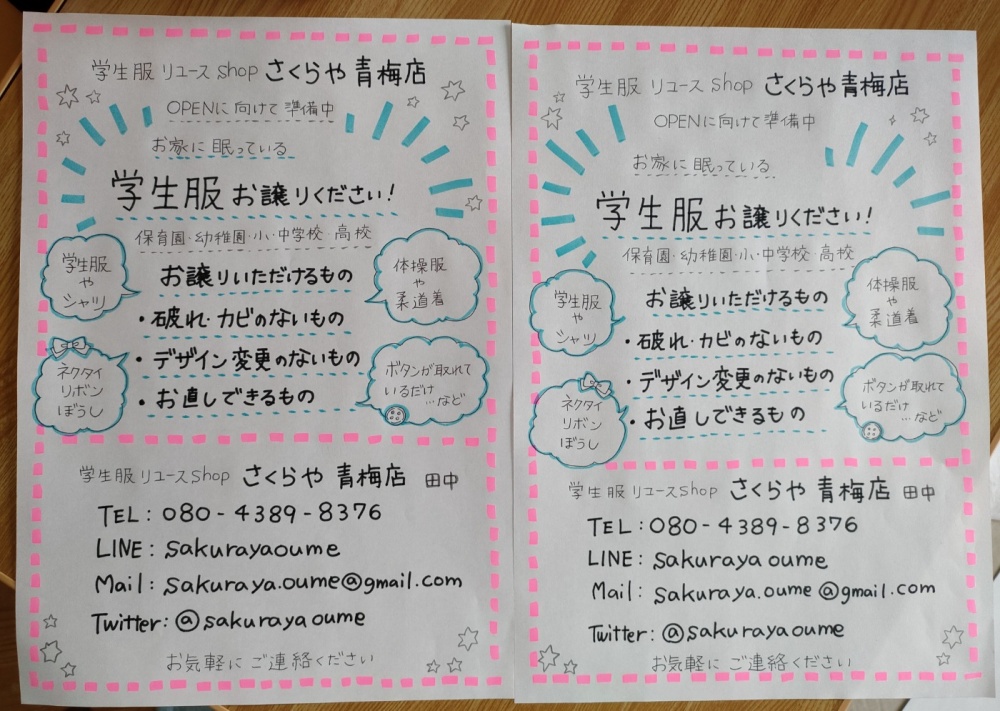 学生服リユースshop さくらや 青梅店
OPENに向けて準備中
お家に眠っている
学生服お譲りください!
保育園・幼稚園・小・中学校・高校
学生服
や
シャツ
お譲りいただけるもの
体操服
や
柔道着
・破れ・カビのないもの
・デザイン変更のないもの
・お直しできるもの
ネクタイ
リボン
ぼうし
ボタンが取れて
いるだけ
…など
学生服リユースshop さくらや 青梅店 田中
TEL:080-4389-8376
LINE:sakurayaoume
Mail:sakuraya.oume@gmail.com
Twitter:@sakurayaoume
お気軽にご連絡ください
学生服リユースshop さくらや青梅店
OPENに向けて準備中
お家に眠っている
学生服お譲りください!
保育園・幼稚園・小・中学校・高校
学生服
や
シャツ
お譲りいただけるもの
体操服
や
柔道着
・破れ・カビのないもの
・デザイン変更のないもの
・お直しできるもの
ネクタイ
リボン
ぼうし
ボタンが取れて
いるだけ
…など
学生服リユースshop さくらや 青梅店 田中
TEL:080-4389-8376
LINE:sakurayaoume
Mail:sakuraya.oume@gmail.com
Twitter:@sakurayaoume
お気軽にご連絡ください